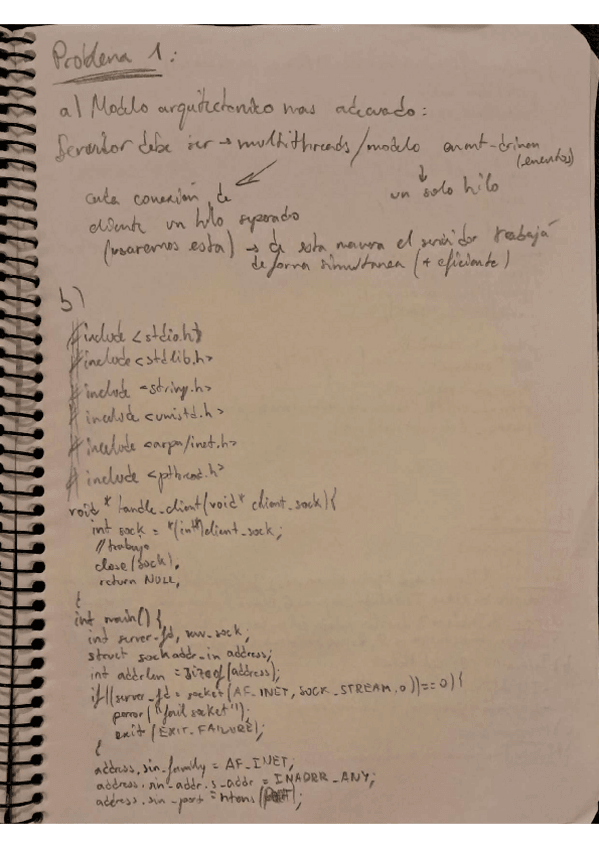 Problema 1:
a) Modelo arquitectonico mas adecuado:
Servidor debe ser → multithreads/modelo event-driven
(eventos)
cada conexión de
cliente un hilo separado
un solo hilo
(usaremos esta) → de esta manera el servidor trabaja
de forma simultanea (+ eficiente)
b)
#include <stdio.h>
#include <stdlib.h>
#include <string.h>
#include <unistd.h>
#include <arpa/inet.h>
#include <pthread.h>
void * handle_client(void* client_sock){
int sock = *(int*)client_sock;
//trabajo
close(sock);
return NULL;
}
int main() {
int server_fd, new_sock;
struct sockaddr_in address;
int addrlen = sizeof(address);
if((server_fd = socket(AF_INET, SOCK_STREAM, 0))==0){
perror("fail socket");
exit(EXIT_FAILURE);
}
address.sin_family = AF_INET;
address.sin_addr.s_addr = INADDR_ANY;
address.sin_port = htons(PORT);